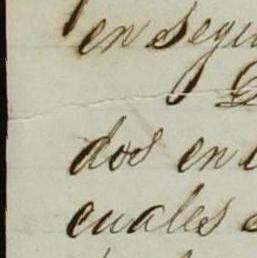 en segu
dos en l
cuales